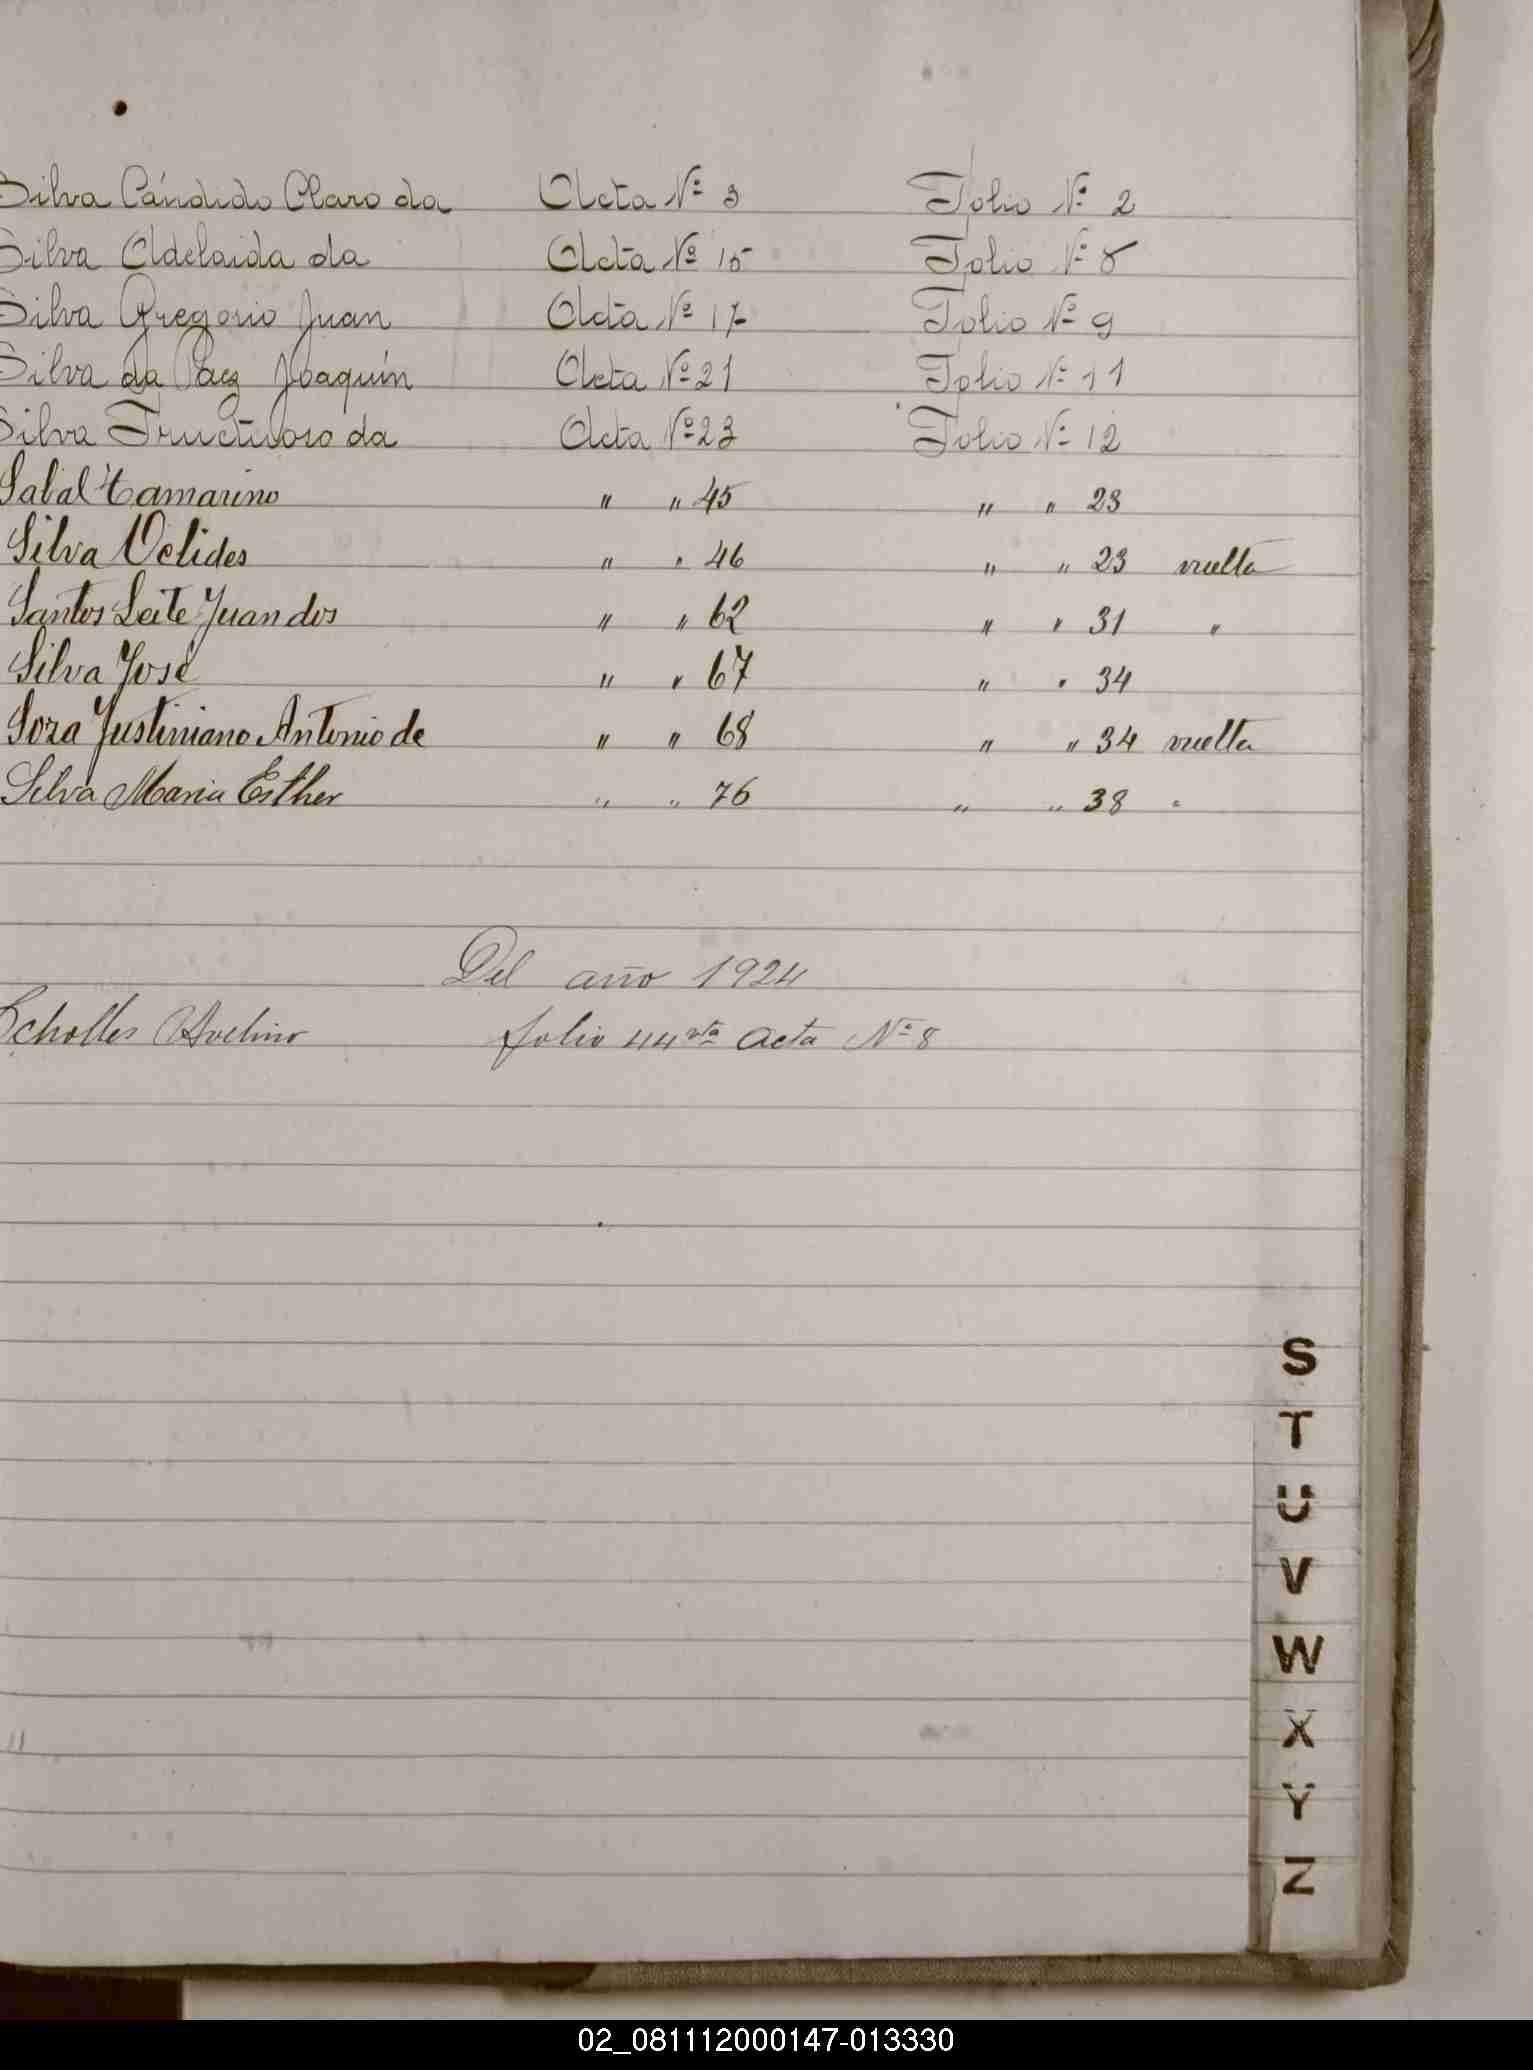 Silva Cándido Claro da Acta Nº 3 Folio Nº 2
Silva Adelaida da Acta Nº 15 Folio Nº 8
Silva Gregorio Juan Acta Nº 17 Folio Nº 9
Silva da Paez Joaquín Acta Nº 21 Folio Nº 11
Silva Fructuoso da Acta Nº 23 Folio Nº 12
Sabal Tamarino " " 45 " " 23
Silva Oclides " " 46 " " 23 vuelta
Santos Leite Juan dos " " 62 " " 31 "
Silva José " " 67 " " 34
Soza Justiniano Antonio de " " 68 " " 34 vuelta
Silva Maria Esther " " 76 " " 38 "
Del año 1924
Scholles Avelino folio 44 vta acta Nº 8
S
T
U
V
W
X
Y
Z
02_081112000147-013330